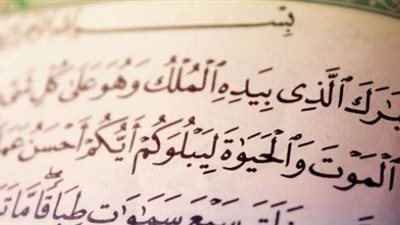 بِسْـ
ـبَٰرَكَ ٱلَّذِى بِيَدِهِ ٱلْمُلْكُ وَهُوَ عَلَىٰ كُلِّ شَىْ
ٱلْمَوْتَ وَٱلْحَيَوٰةَ لِيَبْلُوَكُمْ أَيُّكُمْ أَحْسَنُ عَمَـ
سَبْعَ سَمَٰوَٰتٍ طِبَاقًا مَّا تَـ